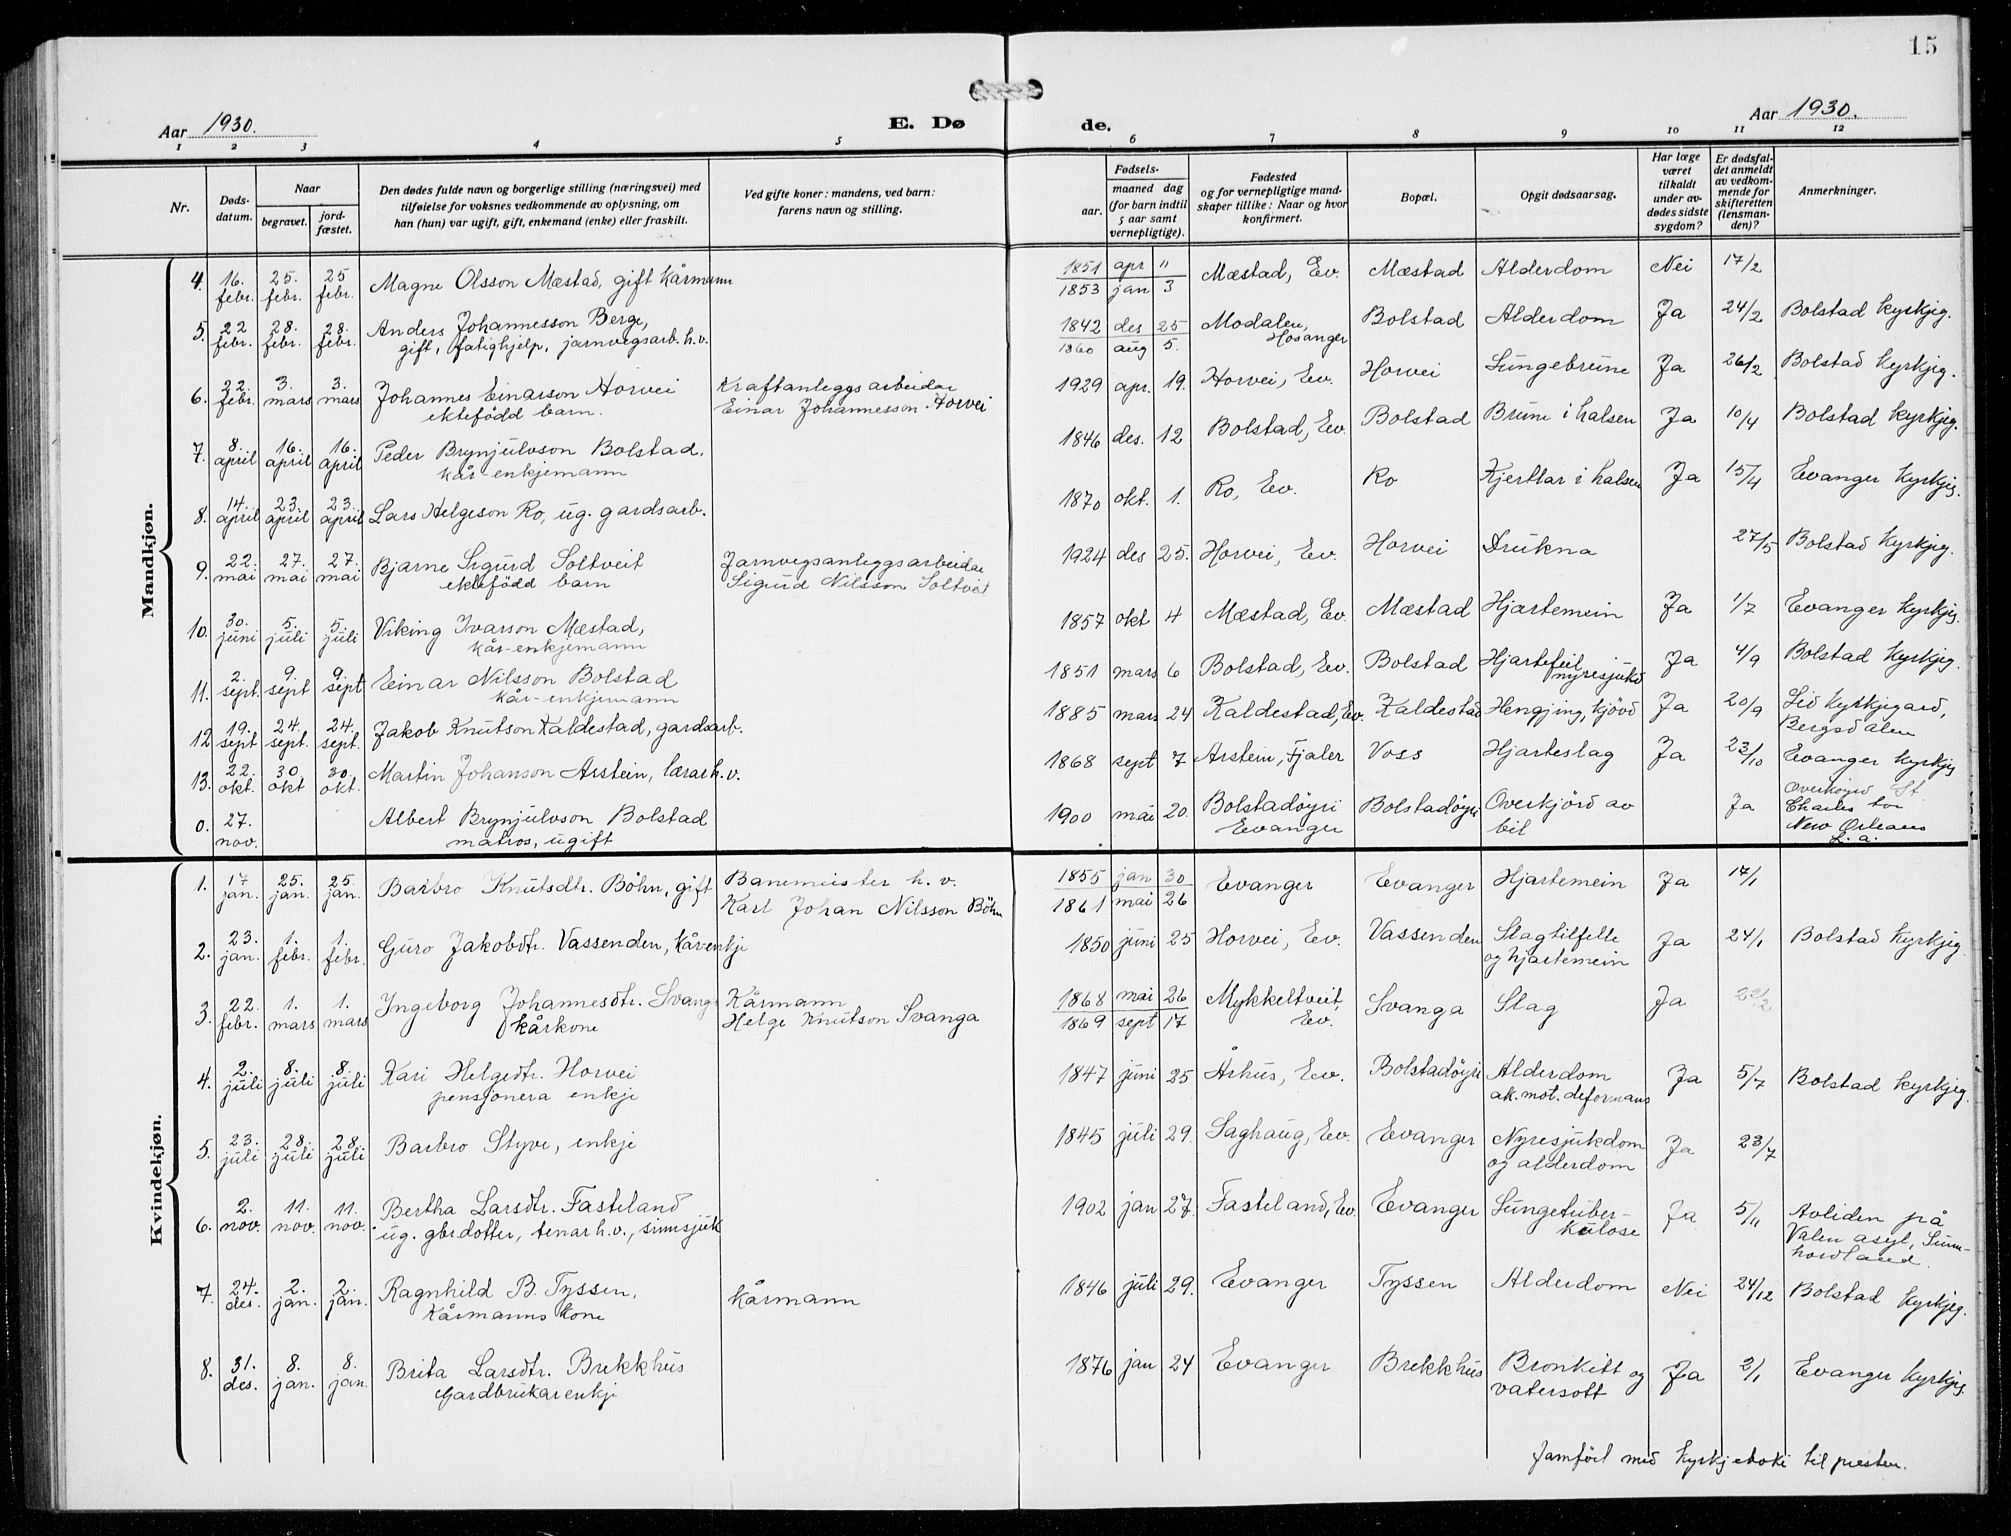 15
Aar 1930.
E. Dø
de.
Aar 1930.
1 2 3 4 5 6 7 8 9 10 11 12
Nr.
Døds-
datum.
Naar
begravet.
jord-
fæstet.
Den dødes fulde navn og borgerlige stilling (næringsvei) med
tilføielse for voksnes vedkommende av oplysning, om
han (hun) var ugift, gift, enkemand (enke) eller fraskilt.
Ved gifte koner: mandens, ved barn:
farens navn og stilling.
Fødsels-
aar.
maaned dag
(for barn indtil
5 aar samt
vernepligtige).
Fødested
og for vernepligtige mand-
skaper tillike: Naar og hvor
konfirmert.
Bopæl.
Opgit dødsaarsag.
Har læge
været
tilkaldt
under av-
dødes sidste
sygdom?
Er dødsfal-
det anmeldt
av vedkom-
mende for
skifteretten
(lensman-
den)?
Anmerkninger.
Mandkjøn.
4. 16. febr. 25. febr. 25 febr. Magne Olsson Mæstad, gift kårmann
1851 apr 11
1853 jan 3
Mæstad, Ev. Mæstad Alderdom Nei 17/2
5. 22 febr. 28. febr. 28. febr. Anders Johannesson Berge,
gift, fatighjelp, jarnvegsarb. h.v.
1842 des 25
1860 aug 5.
Modalen,
Hosanger
Bolstad Alderdom Ja 24/2 Bolstad kyrkjeg.
6. 22. febr. 3. mars 3. mars Johannes Einarson Horvei
ektefödd barn.
Kraftanleggsarbeidar
Einar Johannesson Horvei
1929 apr. 19. Horvei, Ev. Horvei Lungebrune Ja 26/2 Bolstad kyrkjeg.
7. 8. april 16. april 16. april Peder Brynjulvson Bolstad,
kår-enkjemann
1846 des. 12 Bolstad, Ev. Bolstad Brune i halsen Ja 10/4 Bolstad kyrkjeg.
8. 14. april 23. april 23. april Lars Helgeson Ro, ug. gardsarb.
1870 okt. 1. Ro, Ev. Ro Kjertlar i halsen Ja 15/4 Evanger kyrkjeg.
9. 22. mai 27. mai 27. mai Bjarne Sigurd Soltveit
ektefödd barn
Jarnvegsanleggsarbeidar
Sigurd Nilsson Soltveit
1924 des 25. Horvei, Ev. Horvei Drukna 27/5 Bolstad kyrkjeg.
10. 30. juni 5. juli 5. juli Viking Ivarson Mæstad,
kår-enkjemann
1857 okt 4 Mæstad, Ev. Mæstad Hjartemein Ja 1/7 Evanger kyrkjeg.
11. 2. sept. 9. sept 9. sept Einar Nilsson Bolstad
kår-enkjemann
1851 mars 6 Bolstad, Ev. Bolstad Hjartefeil
nyresjukd
Ja 4/9 Bolstad kyrkjeg.
12 19. sept 24. sept. 24. sept. Jakob Knutson Kaldestad, gardsarb.
1885 mars 24 Kaldestad, Ev. Kaldestad Hengjing, kjövd Ja 20/9 Lid kyrkjegard,
Bergsdalen
13. 22. okt. 30 okt 30. okt. Martin Johanson Arstein, lærar h.v.
1868 sept 7 Arstein, Fjaler Voss Hjarteslag Ja 23/10 Evanger kyrkjeg
0. 27. nov. Albert Brynjulvson Bolstad
matros, ugift
1900 mai 20. Bolstadøyri
Evanger
Bolstadøyri Overkjörd av
bil
Ja
St.
Charles
New Orleans
L.a.
Kvindekjøn.
1. 17 jan. 25. jan. 25. jan. Barbro Knutsdtr. Böhn, gift
Banemeister h.v.
Karl Johan Nilsson Böhn
1855 jan 30
1861 mai 26
Evanger Evanger Hjartemein Ja 17/1
2. 23. jan. 1. febr. 1. febr. Guro Jakobdtr. Vassenden, kårenkje
1850 juni 25 Horvei, Ev. Vassenden Slagtilfelle
og hjartemein
Ja 24/1 Bolstad kyrkjeg
3. 22. febr. 1. mars 1. mars Ingeborg Johannesdtr. Svanga
kårkone
Kårmann
Helge Knutson Svanga
1868 mai 26
1869 sept 17
Mykkeltveit,
Ev.
Svanga Slag Ja 22/2
4. 2. juli 8. juli 8. juli Kari Helgedtr. Horvei
pensjonera enkje
1847 juni 25 Århus, Ev. Bolstadöyri Alderdom
ak. mot. deformans
Ja 5/7 Bolstad kyrkjeg.
5. 23. juli 28. juli 28. juli Barbro Styve, enkje
1845 juli 29. Saghaug, Ev. Evanger Nyresjukdom
og alderdom
Ja 23/7
6. 2. nov. 11. nov. 11. nov. Bertha Larsdtr. Fasteland
ug. gbrdotter, tenar h.v., sinnsjuk
1902 jan 27. Fasteland, Ev. Evanger Lungetuber-
kulose
Ja 5/11 Avliden på
Valen asyl, Sunn-
hordland.
7. 24. des. 2. jan. 2. jan. Ragnhild B. Tyssen,
Kårmanns kone
kårmann
1846 juli 29. Evanger Tyssen Alderdom Nei 24/12 Bolstad kyrkjeg.
8. 31. des. 8. jan. 8. jan. Brita Larsdtr. Brekkhus
Gardbrukarenkje
1876 jan 24 Evanger Brekkhus Bronkitt og
vatersott
Ja 2/1 Evanger kyrkjeg.
Jamfört med kyrkjeboki til presten.